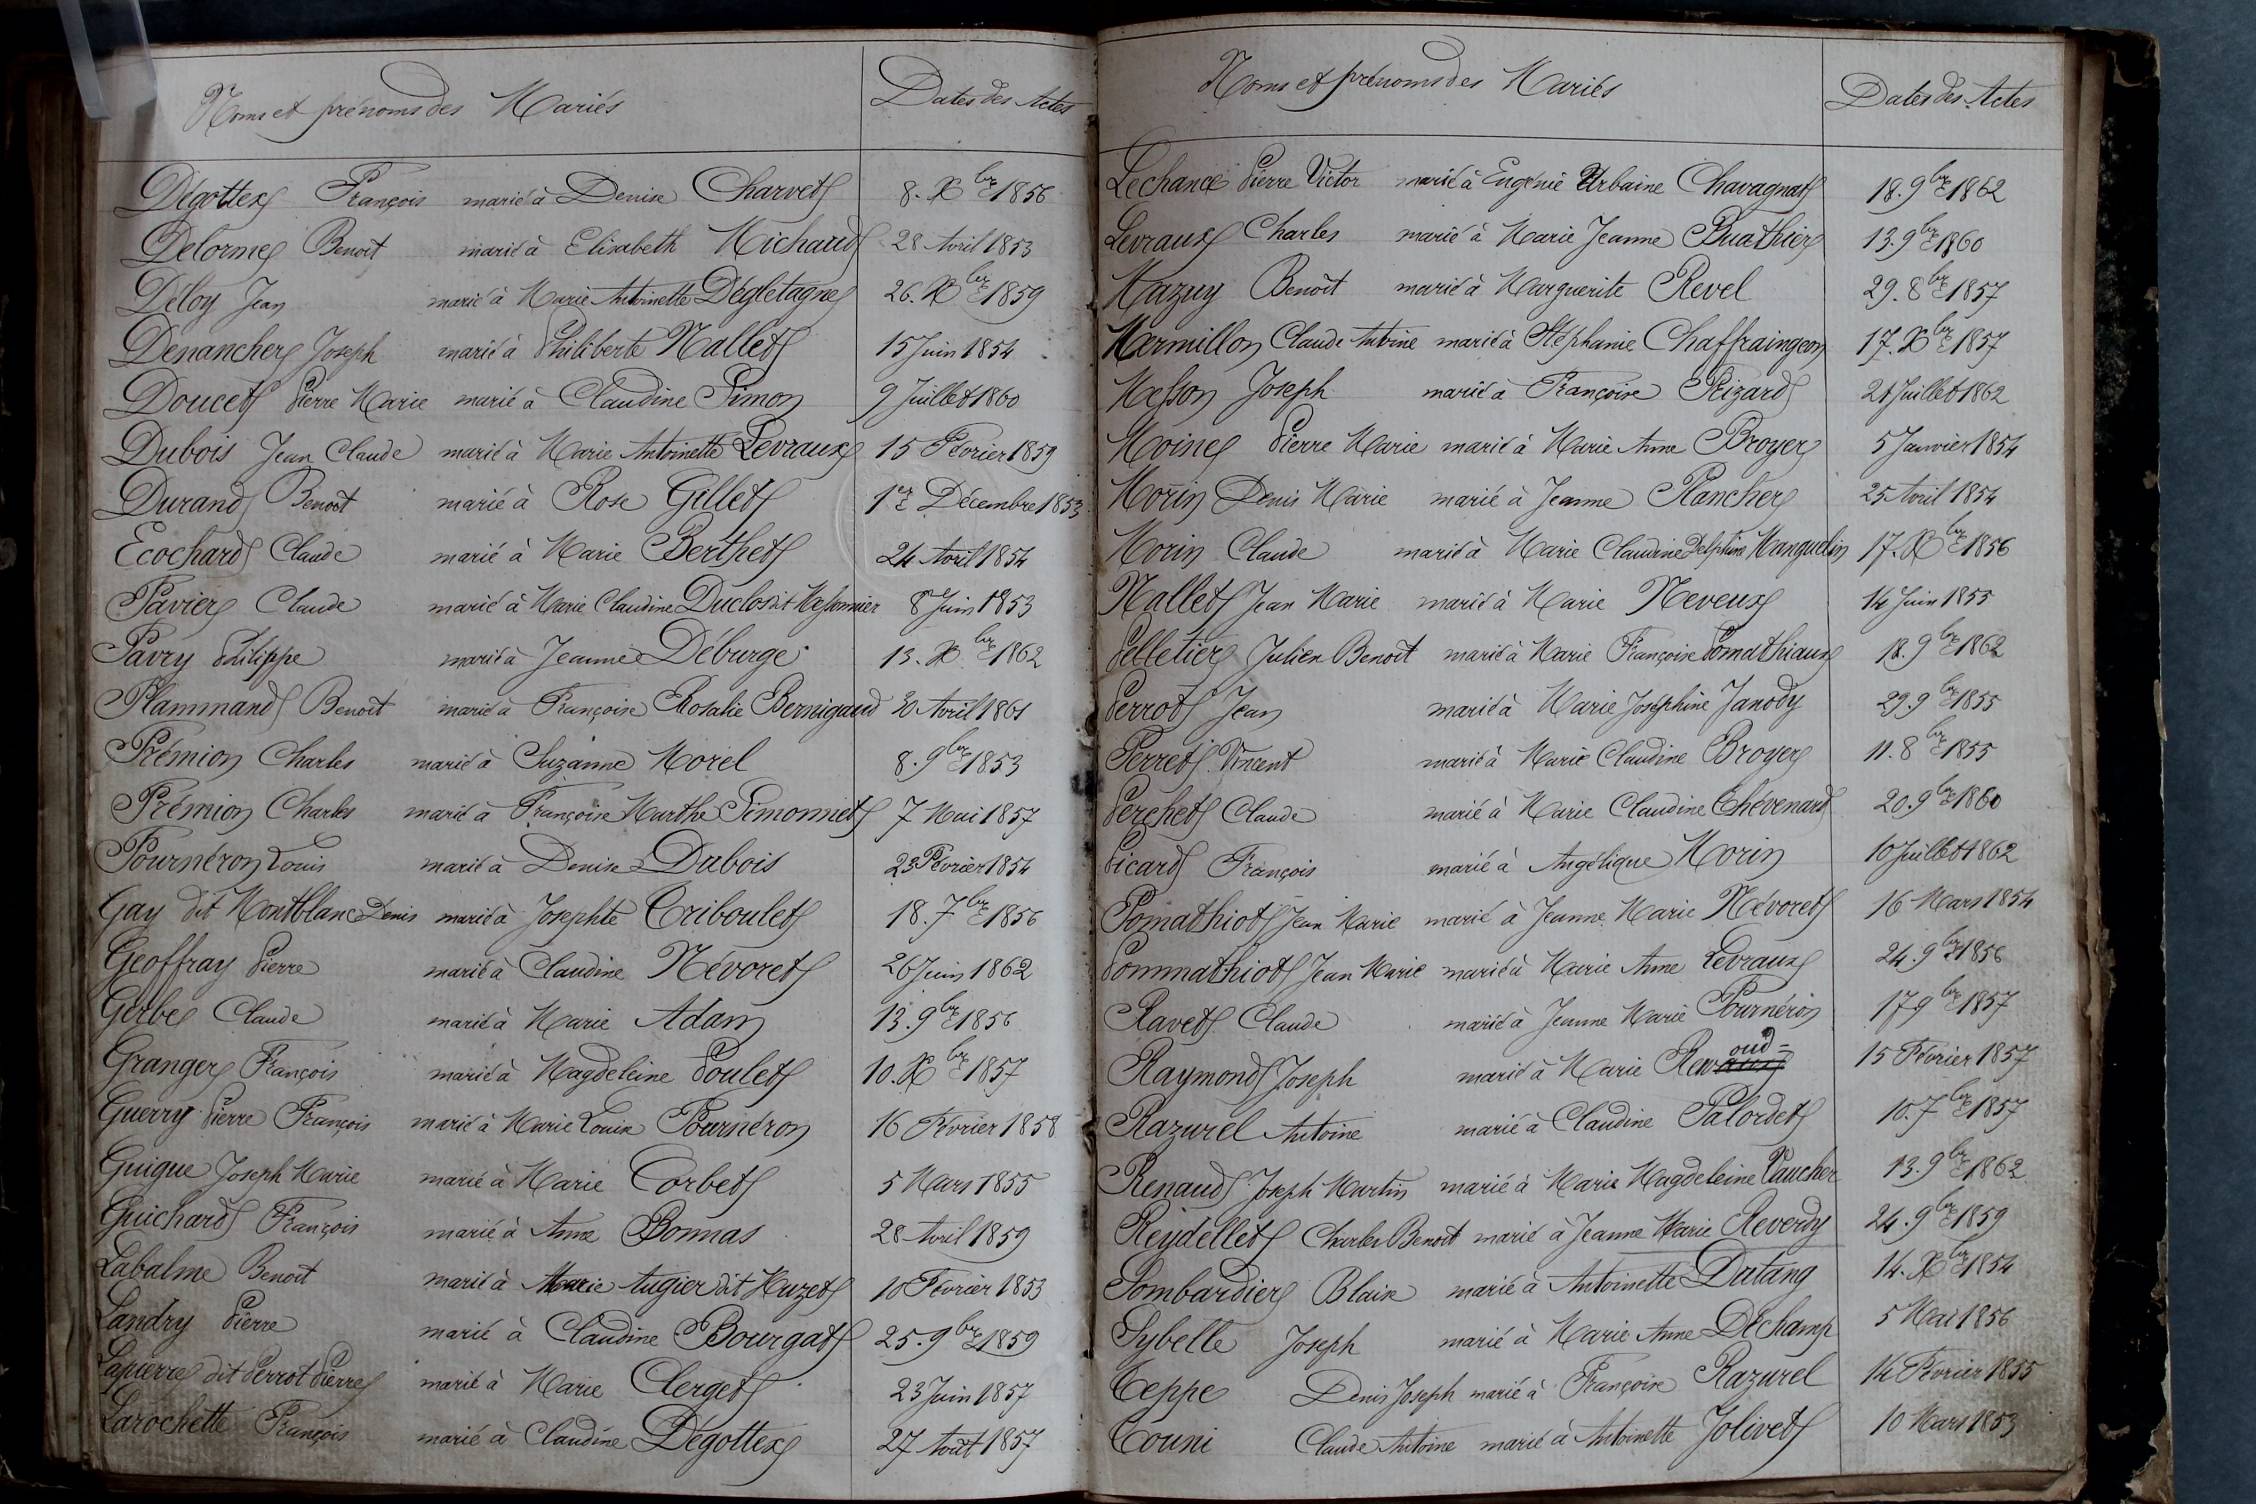 Noms et prénoms des Mariés Dates des Actes
Dégottex François marié à Denise Charvet 8. Xbre 1856
Delorme Benoit marié à Elisabeth Michaud 28 Avril 1853
Déloy Jean marié à Marie Antoinette Dégletagne 26. Xbre 1859
Denancher Joseph marié à Philiberte Nallet 15 Juin 1854
Doucet Pierre Marie marié à Claudine Simon 9 Juillet 1860
Dubois Jean Claude marié à Marie Antoinette Levraux 15 Février 1859
Durand Benoit marié à Rose Gillet 1er Décembre 1853
Ecochard Claude marié à Marie Berthet 24 Avril 1854
Favier Claude marié à Marie Claudine Duclos dit Messonnier 8 Juin 1853
Favry Philippe marié à Jeanne Déburge 13. Xbre 1862
Flammand Benoit marié à Françoise Rosalie Bernigaud 30 Avril 1861
Frémion Charles marié à Suzanne Morel 8. 9bre 1853
Frémion Charles marié à Françoise Marthe Simonnet 7 Mai 1857
Fournéron Louis marié à Denise Dubois 23 Février 1854
Gay dit Montblanc Denis marié à Josephte Triboulet 18. 7bre 1856
Geoffray Pierre marié à Claudine Névoret 26 Juin 1862
Gerbe Claude marié à Marie Adam 13. 9bre 1856
Granger François marié à Magdeleine Poulet 10. Xbre 1857
Guerry Pierre François marié à Marie Louise Fournéron 16 Février 1858
Guigue Joseph Marie marié à Marie Corbet 5 Mars 1855
Guichard François marié à Anne Bonnas 28 Avril 1859
Labalme Benoit marié à Marie Augier dit Muzet 10 Février 1853
Landry Pierre marié à Claudine Bourgat 25. 9bre 1859
Lapierre dit Perrot Pierre marié à Marie Clerget 23 Juin 1857
Larochette François marié à Claudine Dégottex 27 Août 1857
Noms et prénoms des Mariés Dates des Actes
Lechance Pierre Victor marié à Eugénie Urbaine Chavagnat 18. 9bre 1862
Levraux Charles marié à Marie Jeanne Buathier 13. 9bre 1860
Mazuy Benoît marié à Marguerite Revel 29. 8bre 1857
Marmillon Claude Antoine marié à Stéphanie Chaffraingeon 17. Xbre 1857
Messon Joseph marié à Françoise Rizard 21 Juillet 1862
Moine Pierre Marie marié à Marie Anne Broyer 5 Janvier 1854
Morin Denis Marie marié à Jeanne Plancher 25 Avril 1854
Morin Claude marié à Marie Claudine Delphine Manguelin 17. Xbre 1856
Nallet Jean Marie marié à Marie Neveux 14 Juin 1855
Pelletier Julien Benoit marié à Marie Françoise Pomathiaux 18. 9bre 1862
Perrot Jean marié à Marie Joséphine Janody 29. 9bre 1855
Perret Vincent marié à Marie Claudine Broyer 11. 8bre 1855
Perchet Claude marié à Marie Claudine Thévenard 20. 9bre 1860
Picard François marié à Angélique Morin 10 Juillet 1862
Pomathiot Jean Marie marié à Jeanne Marie Névoret 16 Mars 1854
Pommathiot Jean Marie marié à Marie Anne Levraux 24. 9bre 1856
Ravet Claude marié à Jeanne Marie Fournéron 17 9bre 1857
Raymond Joseph marié à Marie Revoud 15 Février 1857
Razurel Antoine marié à Claudine Palordet 10. 7bre 1857
Renaud Joseph Martin marié à Marie Magdeleine Faucher 13. 9bre 1862
Reydellet Charles Benoit marié à Jeanne Marie Reverdy 24. 9bre 1859
Sombardier Blaise marié à Antoinette Dutang 14. Xbre 1854
Sybelle Joseph marié à Marie Anne Déchamp 5 Mai 1856
Teppe Denis Joseph marié à Françoise Razurel 14 Février 1855
Touni Claude Antoine marié à Antoinette Jolivet 10 Mars 1853